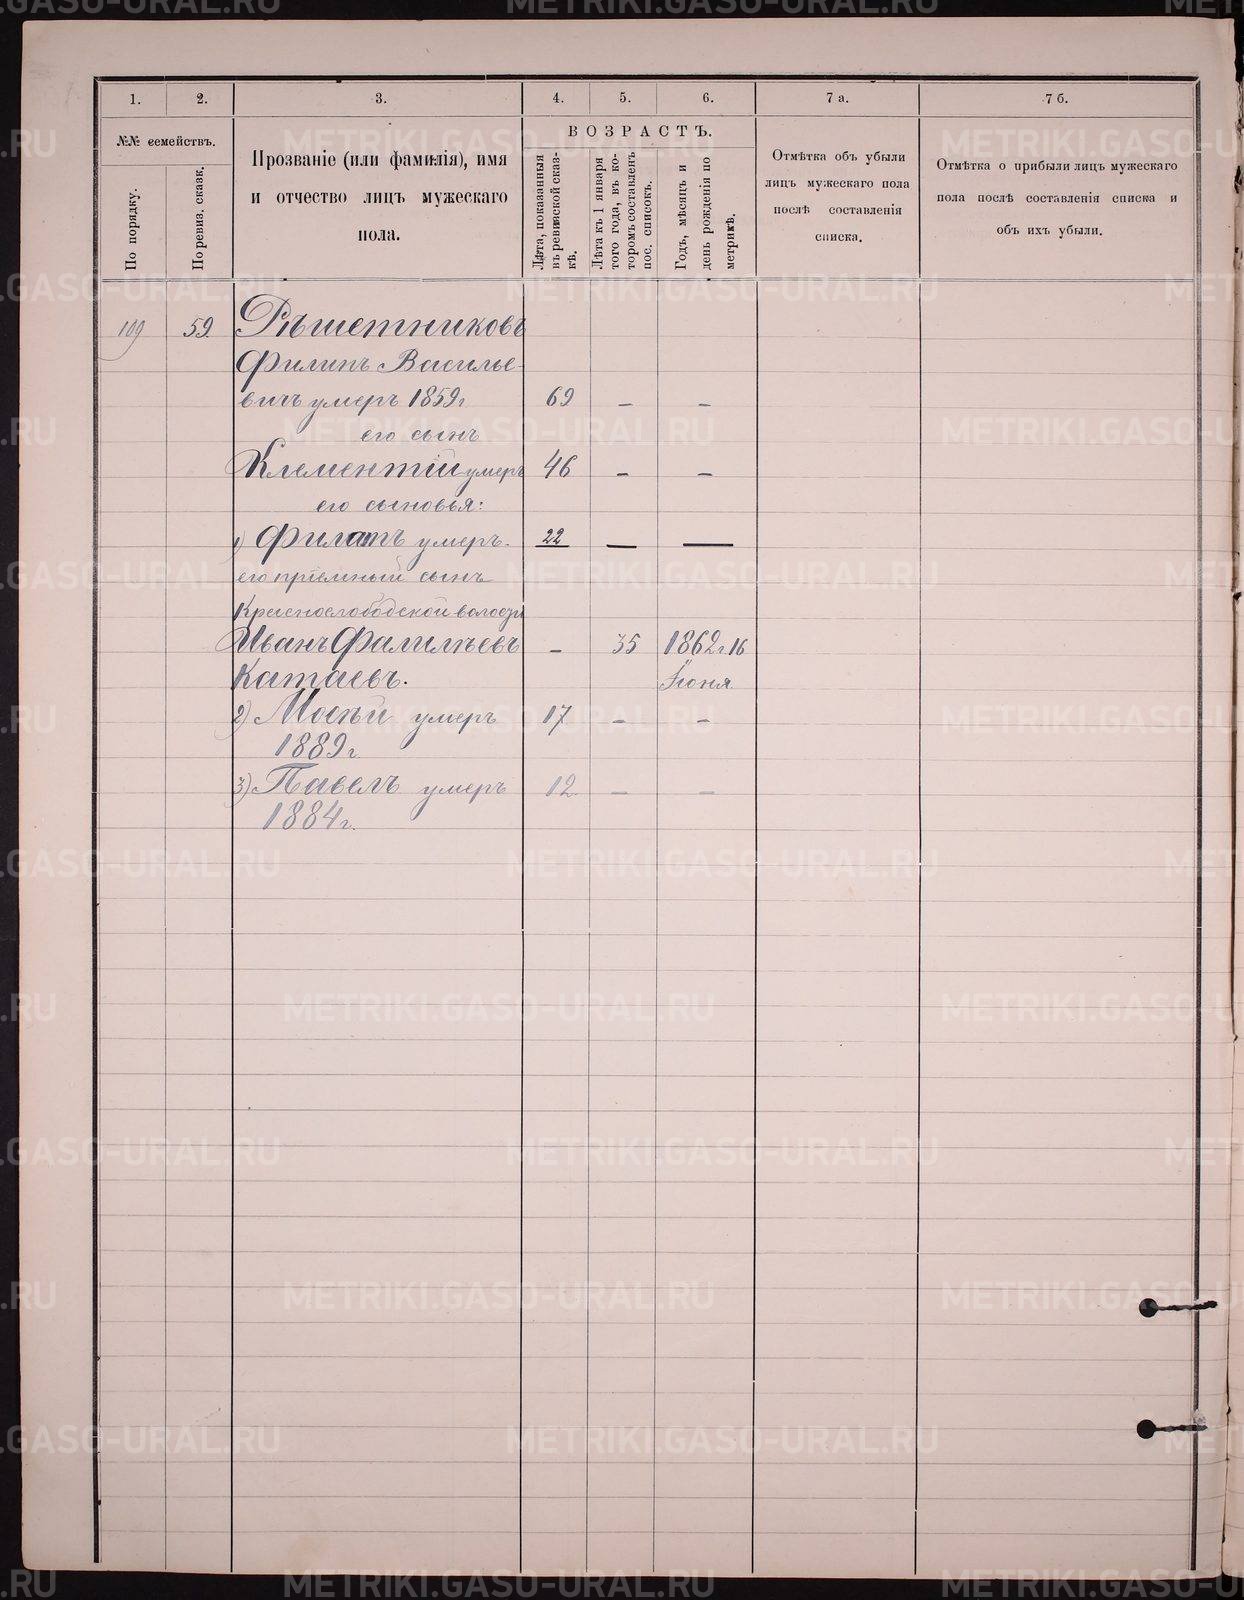 1.
2.
3.
4.
5.
6.
7 а.
7 б.
№№ семействъ.
По порядку.
По ревиз. сказк.
Прозваніе (или фамилія), имя
и отчество лицъ мужескаго
пола.
ВОЗРАСТЪ.
Лѣта, показанныя
въ ревизской сказ-
кѣ.
Лѣта къ 1 января
того года, въ ко-
торомъ составленъ
пос. списокъ.
Годъ, мѣсяцъ и
день рожденія по
метрикѣ.
Отмѣтка объ убыли
лицъ мужескаго пола
послѣ составленія
списка.
Отмѣтка о прибыли лицъ мужескаго
пола послѣ составленія списка и
объ ихъ убыли.
109 59. Рѣшетниковъ
Филипъ Василье-
вичъ умеръ 1859г 69 – –
его сынъ
Клементій умеръ 46 – –
его сыновья:
1) Филатъ умеръ. 22 — —
его пріемный сынъ
Краснослободской волости
Иванъ Фалилѣевъ – 35 1862г 16
Катаевъ. Іюня
2) Мосѣй умеръ 17 – –
1889г.
3) Павелъ умеръ 12. – –
1884г.
METRIKI.GASO-URAL.RU